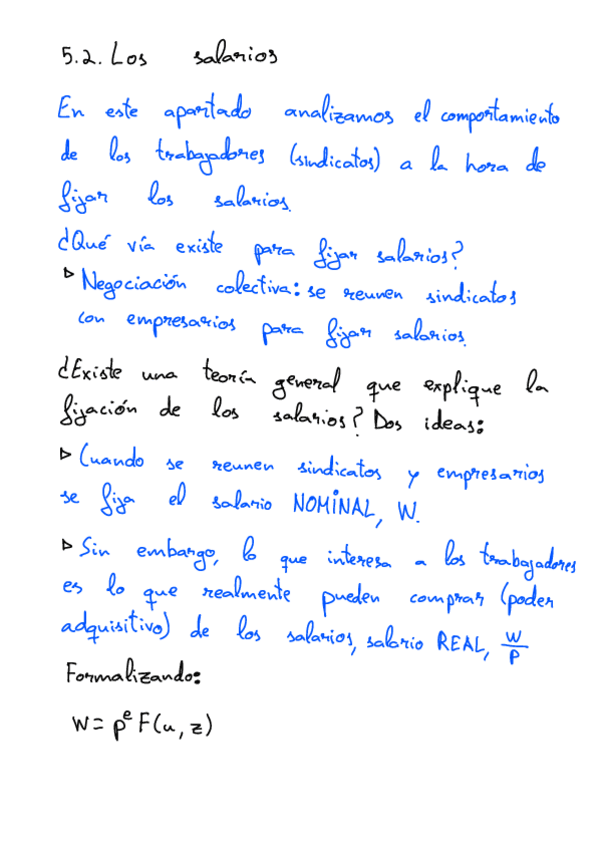 5.2. Los salarios
En este apartado analizamos el comportamiento
de los trabajadores (sindicatos) a la hora de
fijar los salarios.
¿Qué vía existe para fijar salarios?
▹ Negociación colectiva: se reunen sindicatos
con empresarios para fijar salarios.
¿Existe una teoría general que explique la
fijación de los salarios? Dos ideas:
▹ Cuando se reunen sindicatos y empresarios
se fija el salario NOMINAL, W.
▹ Sin embargo, lo que interesa a los trabajadores
es lo que realmente pueden comprar (poder
adquisitivo) de los salarios, salario REAL, W/P
Formalizando:
W = pᵉ F(u, z)